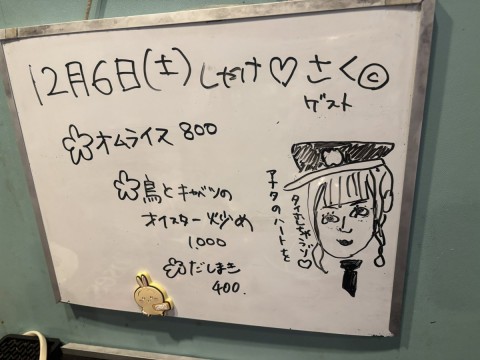 12月6日(土)しゃけ♡さく©
ゲスト
オムライス 800
鳥とキャベツの
オイスター炒め
1,000
だしまき
400.
アナタのハートを
タイホしちゃうゾ♡